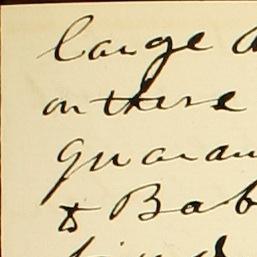 large a
on these
guaran
& Bab